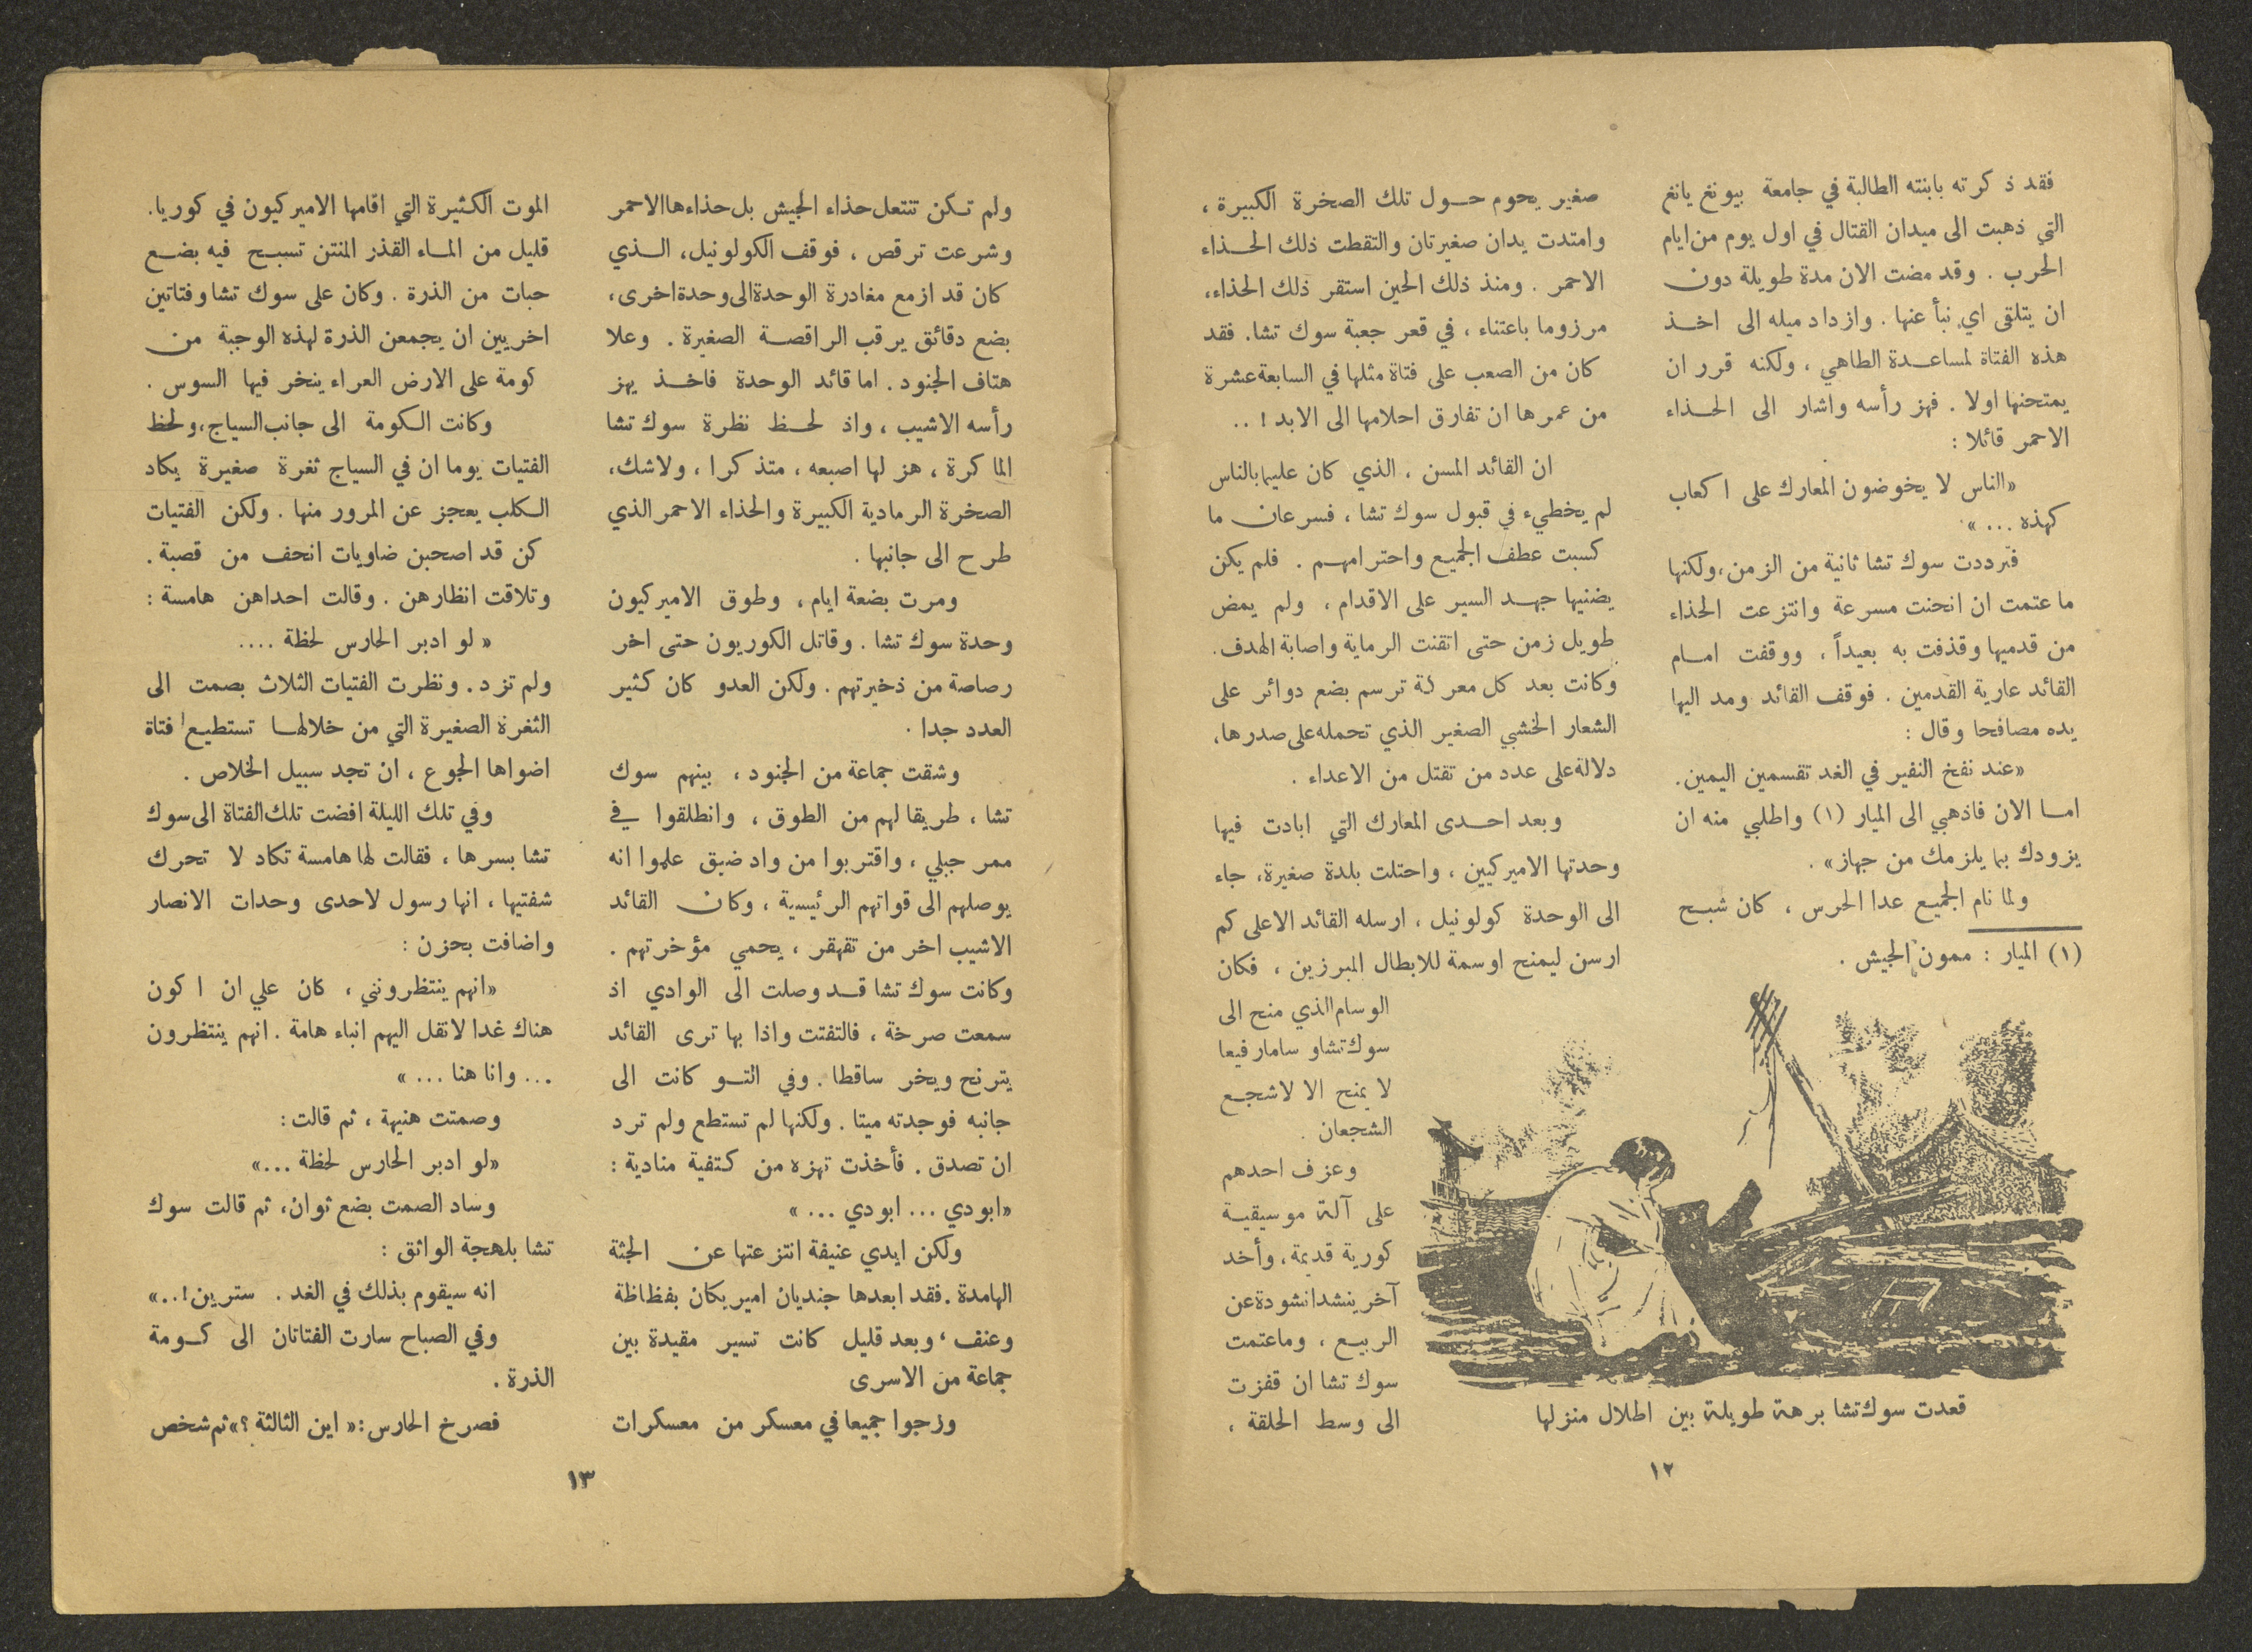 فقد ذكرته بابنته الطالبة في جامعة بيونغ يانغ
التي ذهبت الى ميدان القتال في اول يوم من ايام
الحرب . وقد مضت الان مدة طويلة دون
ان يتلقى اي نبأ عنها . وازداد ميله الى اخذ
هذه الفتاة لمساعدة الطاهي ، ولكنه قرر ان
يمتحنها اولا . فهز رأسه واشار الى الحذاء
الاحمر قائلا :
«الناس لا يخوضون المعارك على اكعاب
كهذه ... »
فترددت سوك تشا ثانية من الزمن، ولكنها
ما عتمت ان انحنت مسرعة وانتزعت الحذاء
من قدميها وقذفت به بعيداً ، ووقفت امام
القائد عارية القدمين . فوقف القائد ومد اليها
يده مصافحا وقال :
«عند نفخ النفير في الغد تقسمين اليمين .
اما الان فاذهبي الى الميار (١) واطلبي منه ان
يزودك بما يلزمك من جهاز» .
ولما نام الجميع عدا الحرس ، كان شبح
(١) الميار : ممون الجيش .
قعدت سوك تشا برهة طويلة بين اطلال منزلها
صغير يحوم حول تلك الصخرة الكبيرة ،
وامتدت يدان صغيرتان والتقطت ذلك الحذاء
الاحمر . ومنذ ذلك الحين استقر ذلك الحذاء،
مرزوما باعتناء ، في قعر جعبة سوك تشا. فقد
كان من الصعب على فتاة مثلها في السابعة عشرة
من عمرها ان تفارق احلامها الى الابد ! ..
ان القائد المسن ، الذي كان عليما بالناس
لم يخطيء في قبول سوك تشا ، فسرعان ما
كسبت عطف الجميع واحترامهم . فلم يكن
يضنيها جهد السير على الاقدام ، ولم يمض
طويل زمن حتى اتقنت الرماية واصابة الهدف .
وكانت بعد كل معركة ترسم بضع دوائر على
الشعار الخشبي الصغير الذي تحمله على صدرها،
دلالة على عدد من تقتل من الاعداء .
وبعد احدى المعارك التي ابادت فيها
وحدتها الاميركيين ، واحتلت بلدة صغيرة، جاء
الى الوحدة كولونيل ، ارسله القائد الاعلى كم
ارسن ليمنح اوسمة للابطال المبرزين ، فكان
الوسام الذي منح الى
سوك تشا وساما رفيعا
لا يمنح الا لاشجع
الشجعان .
وعزف احدهم
على آلة موسيقية
كورية قديمة، وأخد
آخر ينشد انشودة عن
الربيع ، وما عتمت
سوك تشا ان قفزت
الى وسط الحلقة ،
١٢
ولم تكن تنتعل حذاء الجيش بل حذاءها الاحمر
وشرعت ترقص ، فوقف الكولونيل، الذي
كان قد ازمع مغادرة الوحدة الى وحدة اخرى،
بضع دقائق يرقب الراقصة الصغيرة . وعلا
هتاف الجنود . اما قائد الوحدة فاخذ يهز
رأسه الاشيب ، واذ لحظ نظرة سوك تشا
الماكرة ، هز لها اصبعه ، متذكرا ، ولاشك،
الصخرة الرمادية الكبيرة والحذاء الاحمر الذي
طرح الى جانبها .
ومرت بضعة ايام ، وطوق الاميركيون
وحدة سوك تشا . وقاتل الكوريون حتى اخر
رصاصة من ذخيرتهم . ولكن العدو كان كثير
العدد جدا .
وشقت جماعة من الجنود ، بينهم سوك
تشا ، طريقا لهم من الطوق ، وانطلقوا في
ممر جبلي ، واقتربوا من واد ضيق علموا انه
يوصلهم الى قواتهم الرئيسية ، وكان القائد
الاشيب اخر من تقهقر ، يحمي مؤخرتهم .
وكانت سوك تشا قد وصلت الى الوادي اذ
سمعت صرخة ، فالتفتت واذا بها ترى القائد
يترنح ويخر ساقطا . وفي التو كانت الى
جانبه فوجدته ميتا . ولكنها لم تستطع ولم ترد
ان تصدق . فأخذت تهزه من كتفية منادية :
«ابودي ... ابودي ... »
ولكن ايدي عنيفة انتزعتها عن الجثة
الهامدة . فقد ابعدها جنديان اميريكان بفظاظة
وعنف ، وبعد قليل كانت تسير مقيدة بين
جماعة من الاسرى
وزجوا جميعا في معسكر من معسكرات
الموت الكثيرة التي اقامها الاميركيون في كوريا.
قليل من الماء القذر المنتن تسبح فيه بضع
حبات من الذرة . وكان على سوك تشا وفتاتين
اخريين ان يجمعن الذرة لهذه الوجبة من
كومة على الارض العراء ينخر فيها السوس .
وكانت الكومة الى جانب السياج، ولحظ
الفتيات يوما ان في السياج ثغرة صغيرة يكاد
الكلب يعجز عن المرور منها . ولكن الفتيات
كن قد اصحبن ضاويات انحف من قصبة .
وتلاقت انظارهن . وقالت احداهن هامسة :
« لو ادبر الحارس لحظة ....
ولم تزد . ونظرت الفتيات الثلاث بصمت الى
الثغرة الصغيرة التي من خلالها تستطيع فتاة
اضواها الجوع ، ان تجد سبيل الخلاص .
وفي تلك الليلة افضت تلك الفتاة الى سوك
تشا بسرها ، فقالت لها هامسة تكاد لا تحرك
شفتيها ، انها رسول لاحدى وحدات الانصار
واضافت بحزن :
«انهم ينتظرونني ، كان علي ان اكون
هناك غدا لانقل اليهم انباء هامة . انهم ينتظرون
... وانا هنا ... »
وصمتت هنيهة ، ثم قالت :
«لو ادبر الحارس لحظة ...»
وساد الصمت بضع ثوان، ثم قالت سوك
تشا بلهجة الواثق :
انه سيقوم بذلك في الغد . سترين !..»
وفي الصباح سارت الفتاتان الى كومة
الذرة .
فصرخ الحارس : « اين الثالثة ؟» ثم شخص
١٣